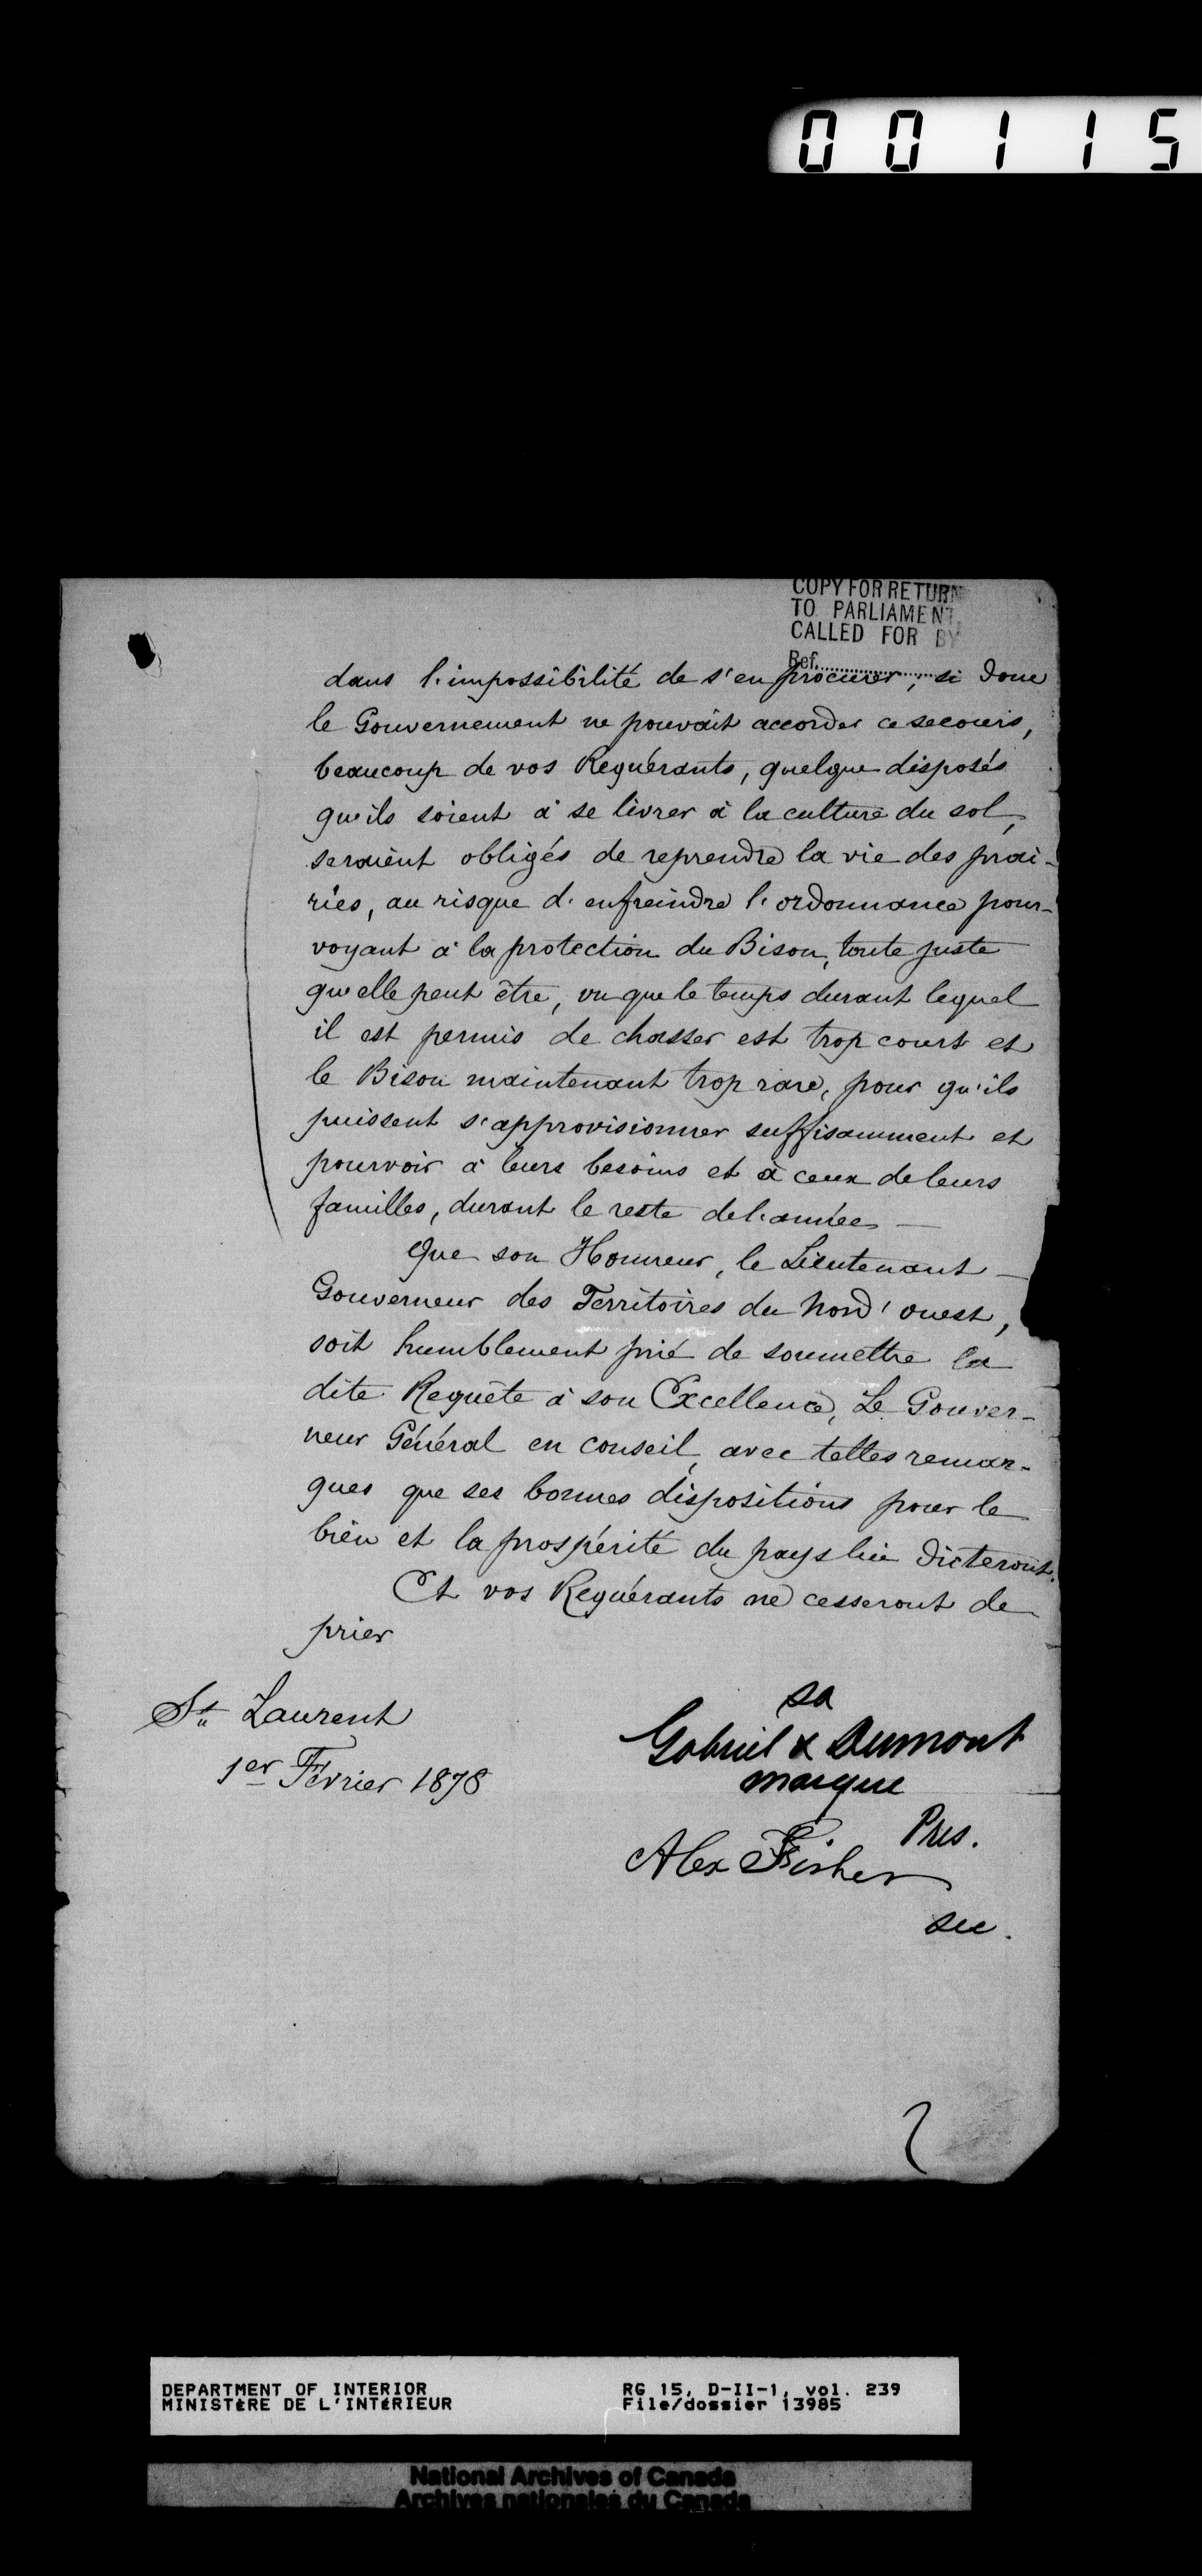 00115
COPY FOR RETURN
TO PARLIAMENT
CALLED FOR BY
Ref.
dans l'impossibilité de s'en procurer ; si donc
le Gouvernement ne pouvait accorder ce secours,
beaucoup de vos Requérants, quelque disposés
qu'ils soient à se livrer à la culture du sol,
seraient obligés de reprendre la vie des prai-
ries, au risque d'enfreindre l'ordonnance pour-
voyant à la protection du Bison, toute juste
qu'elle peut être, vu que le temps durant lequel
il est permis de chasser est trop court et
le Bison maintenant trop rare, pour qu'ils
puissent s'approvisionner suffisamment et
pourvoir à leurs besoins et à ceux de leurs
familles, durant le reste de l'année —
Que son Honneur, le Lieutenant-
Gouverneur des Territoires du Nord'ouest,
soit humblement prié de soumettre la
dite Requête à son Excellence, Le Gouver-
neur Général en conseil, avec telles remar-
ques que ses bonnes dispositions pour le
bien et la prospérité du pays lui dicteront.
Et vos Requérants ne cesseront de
prier
St. Laurent
1er Février 1878
sa
Gabriel x Dumont
marque
Pres.
Alex Fisher
sec.
2
DEPARTMENT OF INTERIOR
MINISTÈRE DE L'INTÉRIEUR
RG 15, D-II-1, vol. 239
File/dossier 13985
National Archives of Canada
Archives nationales du Canada